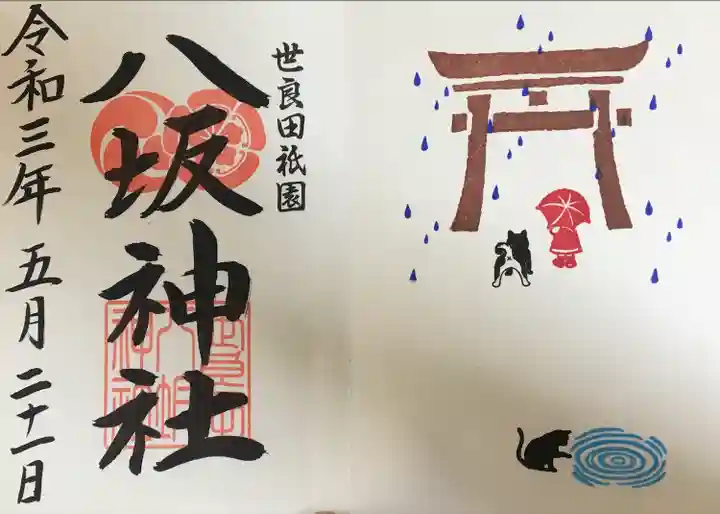 世良田祇園
八坂神社
令和三年五月二十一日